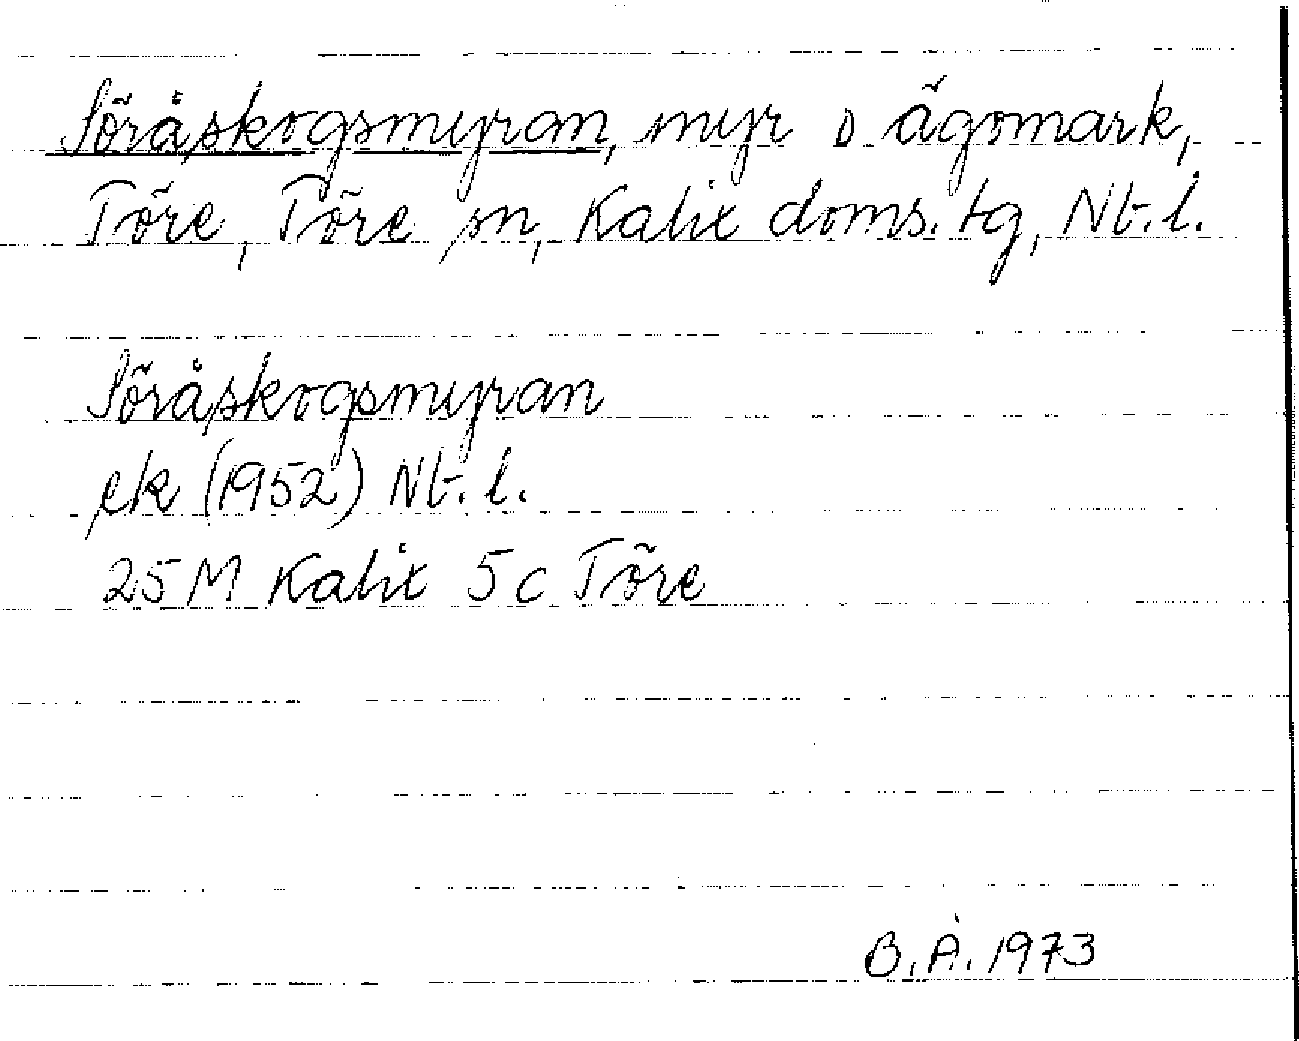 Söråskogsmyran, myr o ägomark,
Töre, Töre sn, Kalix doms. tg, Nt. l.
Söråskogsmyran
ek (1952) Nt. l.
25 M Kalix 5 c Töre
B.Å. 1973